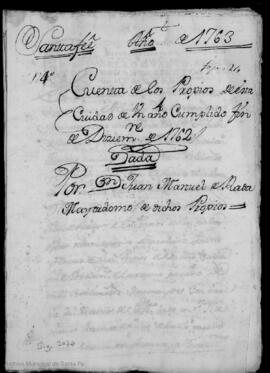 Santafeê Año de 1763
14º
Cuenta de los Propios de esta
Ciudad de Un año Cumplido fin
de Diziem. de 1762
Dada
Por Dn Juan Manuel de Mata
Mayordomo de dichos Propios
Archivo Municipal de Santa Fe